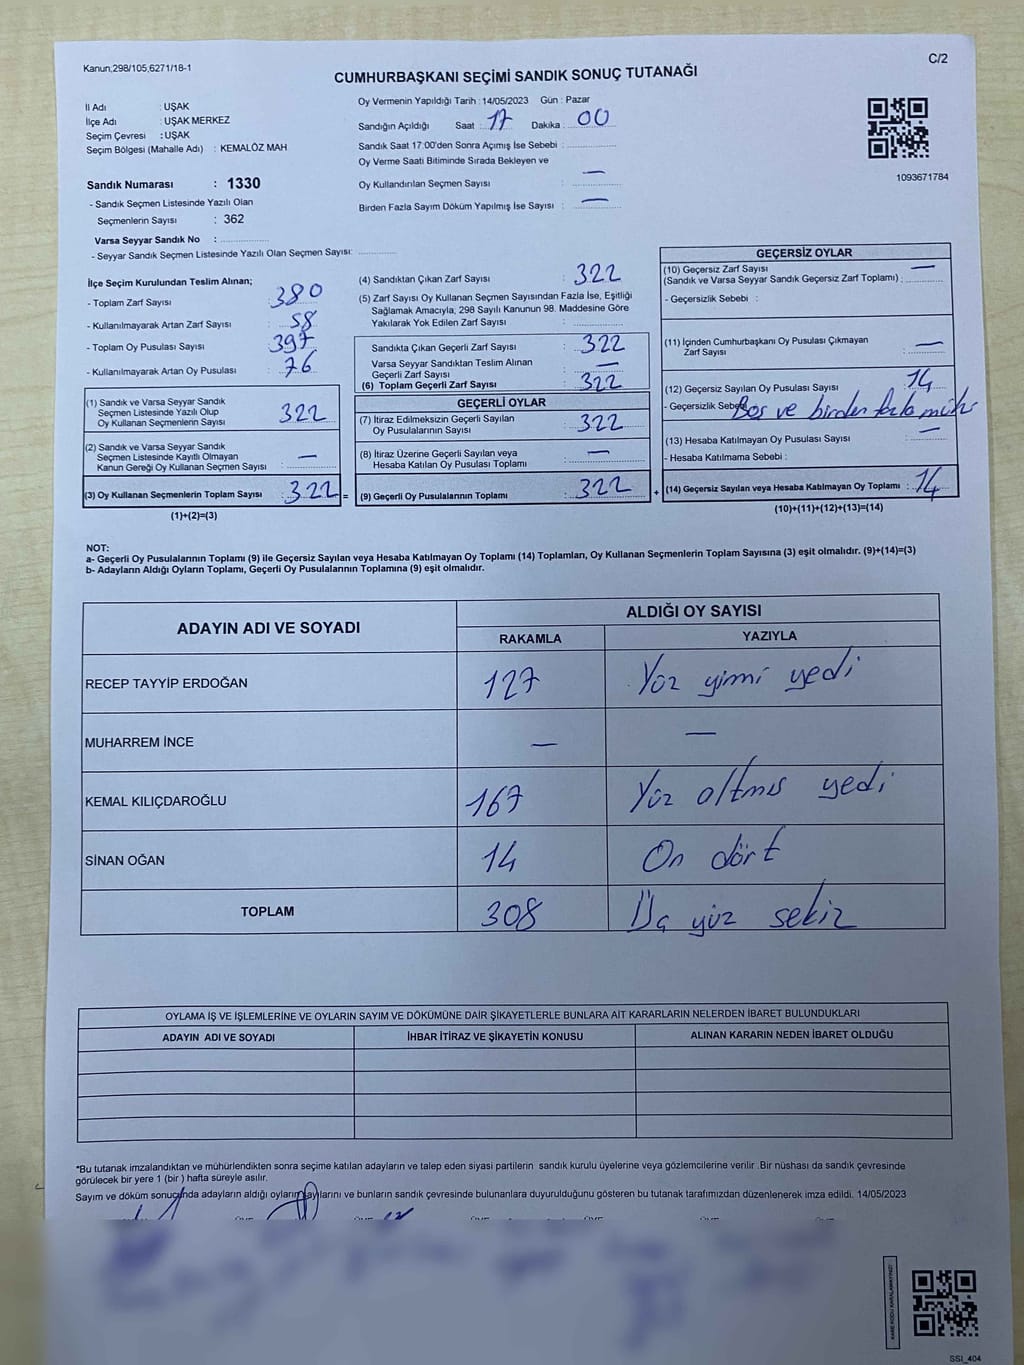 Kanun;298/105,6271/18-1
C/2
CUMHURBAŞKANI SEÇİMİ SANDIK SONUÇ TUTANAĞI
İl Adı : UŞAK
İlçe Adı : UŞAK MERKEZ
Seçim Çevresi : UŞAK
Seçim Bölgesi (Mahalle Adı) : KEMALÖZ MAH
Sandık Numarası : 1330
- Sandık Seçmen Listesinde Yazılı Olan
Seçmenlerin Sayısı : 362
Varsa Seyyar Sandık No :
- Seyyar Sandık Seçmen Listesinde Yazılı Olan Seçmen Sayısı:
Oy Vermenin Yapıldığı Tarih : 14/05/2023 Gün : Pazar
Sandığın Açıldığı Saat : 17 Dakika : 00
Sandık Saat 17:00'den Sonra Açımış İse Sebebi :
Oy Verme Saati Bitiminde Sırada Bekleyen ve
Oy Kullandırılan Seçmen Sayısı : —
Birden Fazla Sayım Döküm Yapılmış İse Sayısı : —
1093671784
İlçe Seçim Kurulundan Teslim Alınan;
- Toplam Zarf Sayısı : 380
- Kullanılmayarak Artan Zarf Sayısı : 58
- Toplam Oy Pusulası Sayısı : 397
- Kullanılmayarak Artan Oy Pusulası : 76
(1) Sandık ve Varsa Seyyar Sandık
Seçmen Listesinde Yazılı Olup
Oy Kullanan Seçmenlerin Sayısı : 322
(2) Sandık ve Varsa Seyyar Sandık
Seçmen Listesinde Kayıtlı Olmayan
Kanun Gereği Oy Kullanan Seçmen Sayısı : —
(3) Oy Kullanan Seçmenlerin Toplam Sayısı : 322 =
(1)+(2)=(3)
(4) Sandıktan Çıkan Zarf Sayısı : 322
(5) Zarf Sayısı Oy Kullanan Seçmen Sayısından Fazla İse, Eşitliği
Sağlamak Amacıyla, 298 Sayılı Kanunun 98. Maddesine Göre
Yakılarak Yok Edilen Zarf Sayısı :
Sandıkta Çıkan Geçerli Zarf Sayısı : 322
Varsa Seyyar Sandıktan Teslim Alınan
Geçerli Zarf Sayısı : —
(6) Toplam Geçerli Zarf Sayısı : 322
GEÇERLİ OYLAR
(7) İtiraz Edilmeksizin Geçerli Sayılan
Oy Pusulalarının Sayısı : 322
(8) İtiraz Üzerine Geçerli Sayılan veya
Hesaba Katılan Oy Pusulası Toplamı : —
(9) Geçerli Oy Pusulalarının Toplamı : 322 +
GEÇERSİZ OYLAR
(10) Geçersiz Zarf Sayısı —
(Sandık ve Varsa Seyyar Sandık Geçersiz Zarf Toplamı) :
- Geçersizlik Sebebi :
(11) İçinden Cumhurbaşkanı Oy Pusulası Çıkmayan
Zarf Sayısı : —
(12) Geçersiz Sayılan Oy Pusulası Sayısı : 14
- Geçersizlik Sebebi Boş ve birden fazla mühür
(13) Hesaba Katılmayan Oy Pusulası Sayısı : —
- Hesaba Katılmama Sebebi :
(14) Geçersiz Sayılan veya Hesaba Katılmayan Oy Toplamı : 14
(10)+(11)+(12)+(13)=(14)
NOT:
a- Geçerli Oy Pusulalarının Toplamı (9) ile Geçersiz Sayılan veya Hesaba Katılmayan Oy Toplamı (14) Toplamları, Oy Kullanan Seçmenlerin Toplam Sayısına (3) eşit olmalıdır. (9)+(14)=(3)
b- Adayların Aldığı Oyların Toplamı, Geçerli Oy Pusulalarının Toplamına (9) eşit olmalıdır.
ADAYIN ADI VE SOYADI
ALDIĞI OY SAYISI
RAKAMLA YAZIYLA
RECEP TAYYİP ERDOĞAN 127 Yüz yirmi yedi
MUHARREM İNCE — —
KEMAL KILIÇDAROĞLU 167 Yüz altmış yedi
SİNAN OĞAN 14 On dört
TOPLAM 308 Üç yüz sekiz
OYLAMA İŞ VE İŞLEMLERİNE VE OYLARIN SAYIM VE DÖKÜMÜNE DAİR ŞİKAYETLERLE BUNLARA AİT KARARLARIN NELERDEN İBARET BULUNDUKLARI
ADAYIN ADI VE SOYADI İHBAR İTİRAZ VE ŞİKAYETİN KONUSU ALINAN KARARIN NEDEN İBARET OLDUĞU
*Bu tutanak imzalandıktan ve mühürlendikten sonra seçime katılan adayların ve talep eden siyasi partilerin sandık kurulu üyelerine veya gözlemcilerine verilir .Bir nüshası da sandık çevresinde
görülecek bir yere 1 (bir ) hafta süreyle asılır.
Sayım ve döküm sonucunda adayların aldığı oyların sayılarını ve bunların sandık çevresinde bulunanlara duyurulduğunu gösteren bu tutanak tarafımızdan düzenlenerek imza edildi. 14/05/2023
KARE KODU KARALAMAYINIZ!
SSI_404